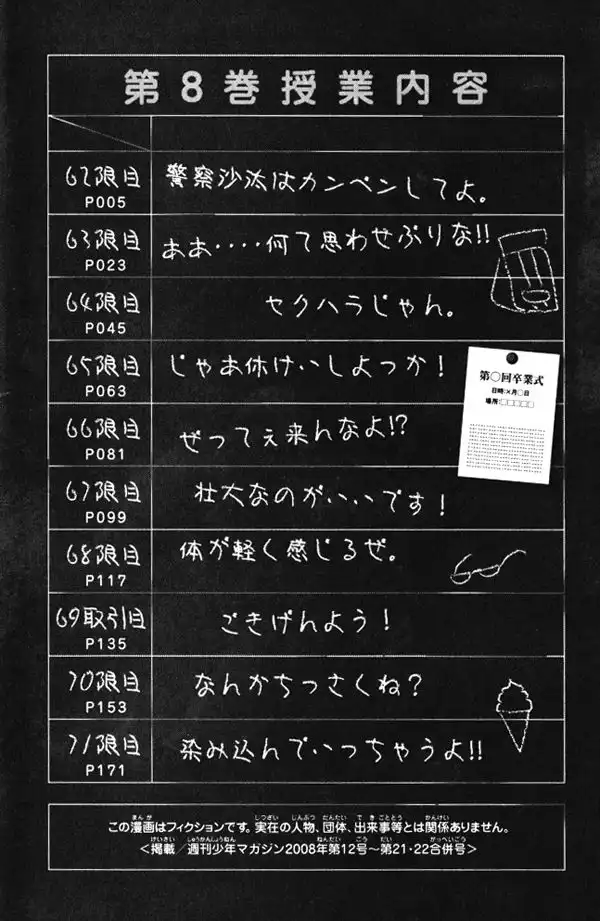 第8巻授業内容
62限目
P005
警察沙汰はカンベンしてよ。
63限目
P023
ああ‥‥何て思わせぶりな!!
64限目
P045
セクハラじゃん。
65限目
P063
じゃあ休けいしよっか！
第〇回卒業式
日時:×月〇日
場所:□□□□□
66限目
P081
ぜってぇ来んなよ!?
67限目
P099
壮大なのがいいです！
68限目
P117
体が軽く感じるぜ。
69取引目
P135
ごきげんよう！
70限目
P153
なんかちっさくね？
71限目
P171
染み込んでいっちゃうよ!!
この漫画はフィクションです。実在の人物、団体、出来事等とは関係ありません。
＜掲載／週刊少年マガジン2008年第12号～第21・22合併号＞